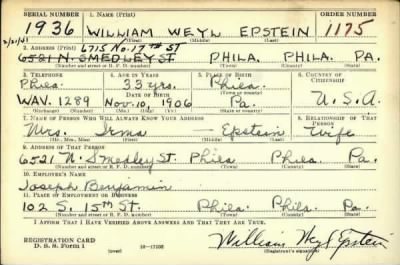 SERIAL NUMBER 1. NAME (Print) ORDER NUMBER
1936 WILLIAM WEYL EPSTEIN 1175
(First) (Middle) (Last)
2/21/41 2. ADDRESS (Print) 6715 NO. 17TH ST
6521 N. SMEDLEY ST. PHILA. PHILA. PA.
(Number and street or R. F. D. number) (Town) (County) (State)
3. TELEPHONE 4. AGE IN YEARS 5. PLACE OF BIRTH 6. COUNTRY OF CITIZENSHIP
Phila. 33 yrs. Phila.
DATE OF BIRTH (Town or county)
WAV. 1289 Nov. 10, 1906 Pa. U.S.A.
(Exchange) (Number) (Mo.) (Day) (Yr.) (State or country)
7. NAME OF PERSON WHO WILL ALWAYS KNOW YOUR ADDRESS 8. RELATIONSHIP OF THAT PERSON
Mrs. Irma — Epstein Wife
(Mr., Mrs., Miss) (First) (Middle) (Last)
9. ADDRESS OF THAT PERSON
6521 N. Smedley St. Phila Phila. Pa.
(Number and street or R. F. D. number) (Town) (County) (State)
10. EMPLOYER'S NAME
Joseph Benjamin
11. PLACE OF EMPLOYMENT OR BUSINESS
102 S. 15th St. Phila. Phila. Pa.
(Number and street or R. F. D. number) (Town) (County) (State)
I AFFIRM THAT I HAVE VERIFIED ABOVE ANSWERS AND THAT THEY ARE TRUE.
REGISTRATION CARD
D. S. S. Form 1 (over) 16—17105 William Weyl Epstein
(Registrant's signature)